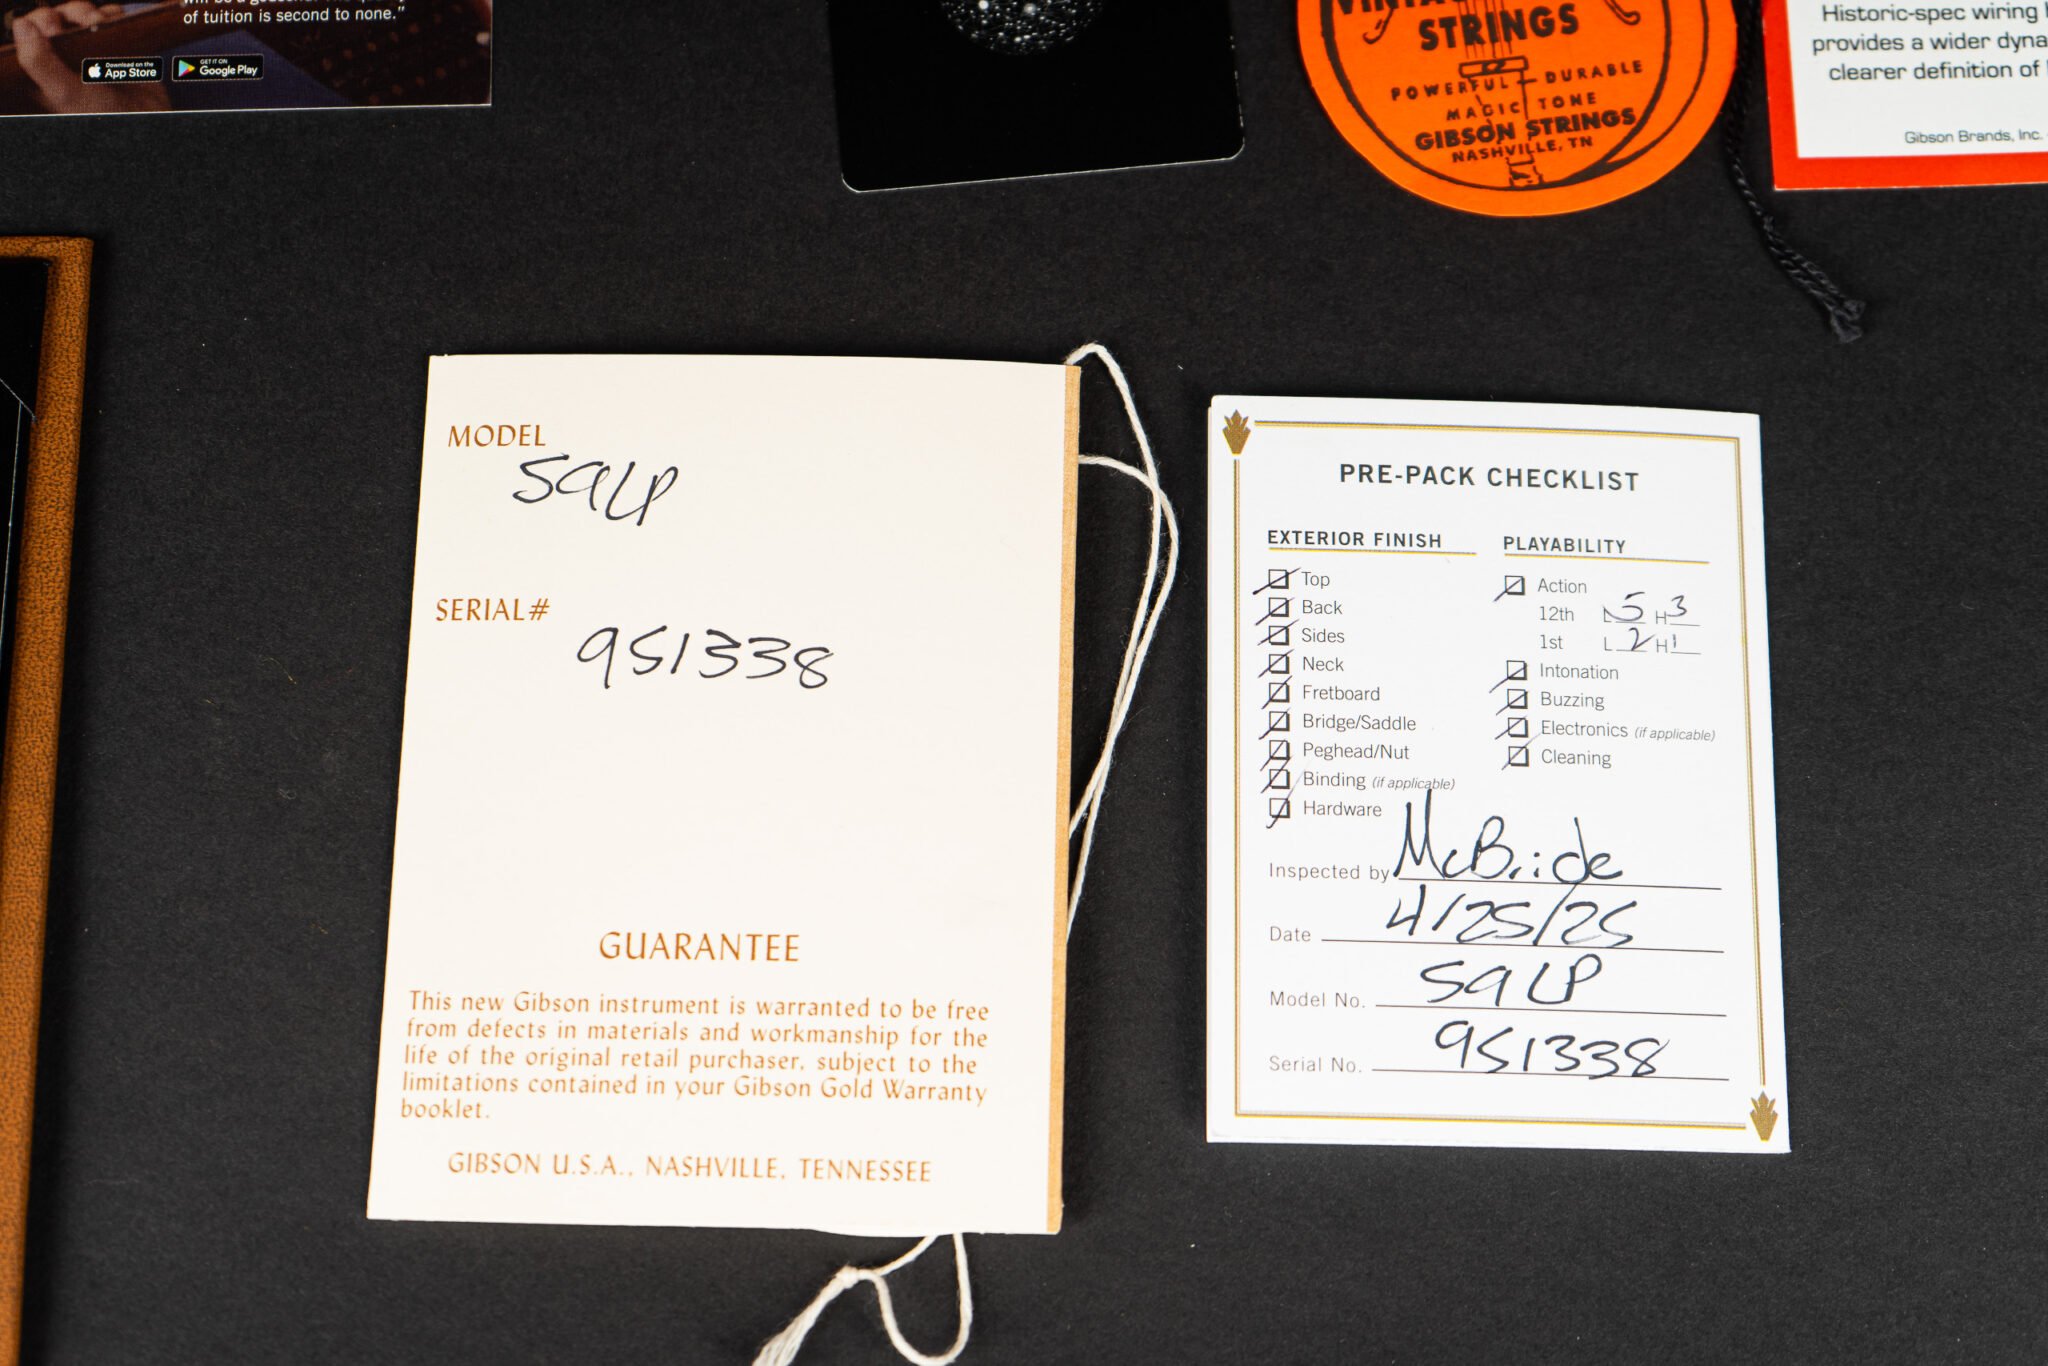 of tuition is second to none."
Download on the
App Store
GET IT ON
Google Play
STRINGS
POWERFUL - DURABLE
MAGIC TONE
GIBSON STRINGS
NASHVILLE, TN
Historic-spec wiring
provides a wider
clearer definition of
Gibson Brands, Inc.
MODEL
59LP
SERIAL#
951338
GUARANTEE
This new Gibson instrument is warranted to be free
from defects in materials and workmanship for the
life of the original retail purchaser, subject to the
limitations contained in your Gibson Gold Warranty
booklet.
GIBSON U.S.A., NASHVILLE, TENNESSEE
PRE-PACK CHECKLIST
EXTERIOR FINISH
Top
Back
Sides
Neck
Fretboard
Bridge/Saddle
Peghead/Nut
Binding (if applicable)
Hardware
PLAYABILITY
Action
12th L 5 H 3
1st L 2 H 1
Intonation
Buzzing
Electronics (if applicable)
Cleaning
Inspected by McBride
Date 4/25/25
Model No. 59 LP
Serial No. 951338